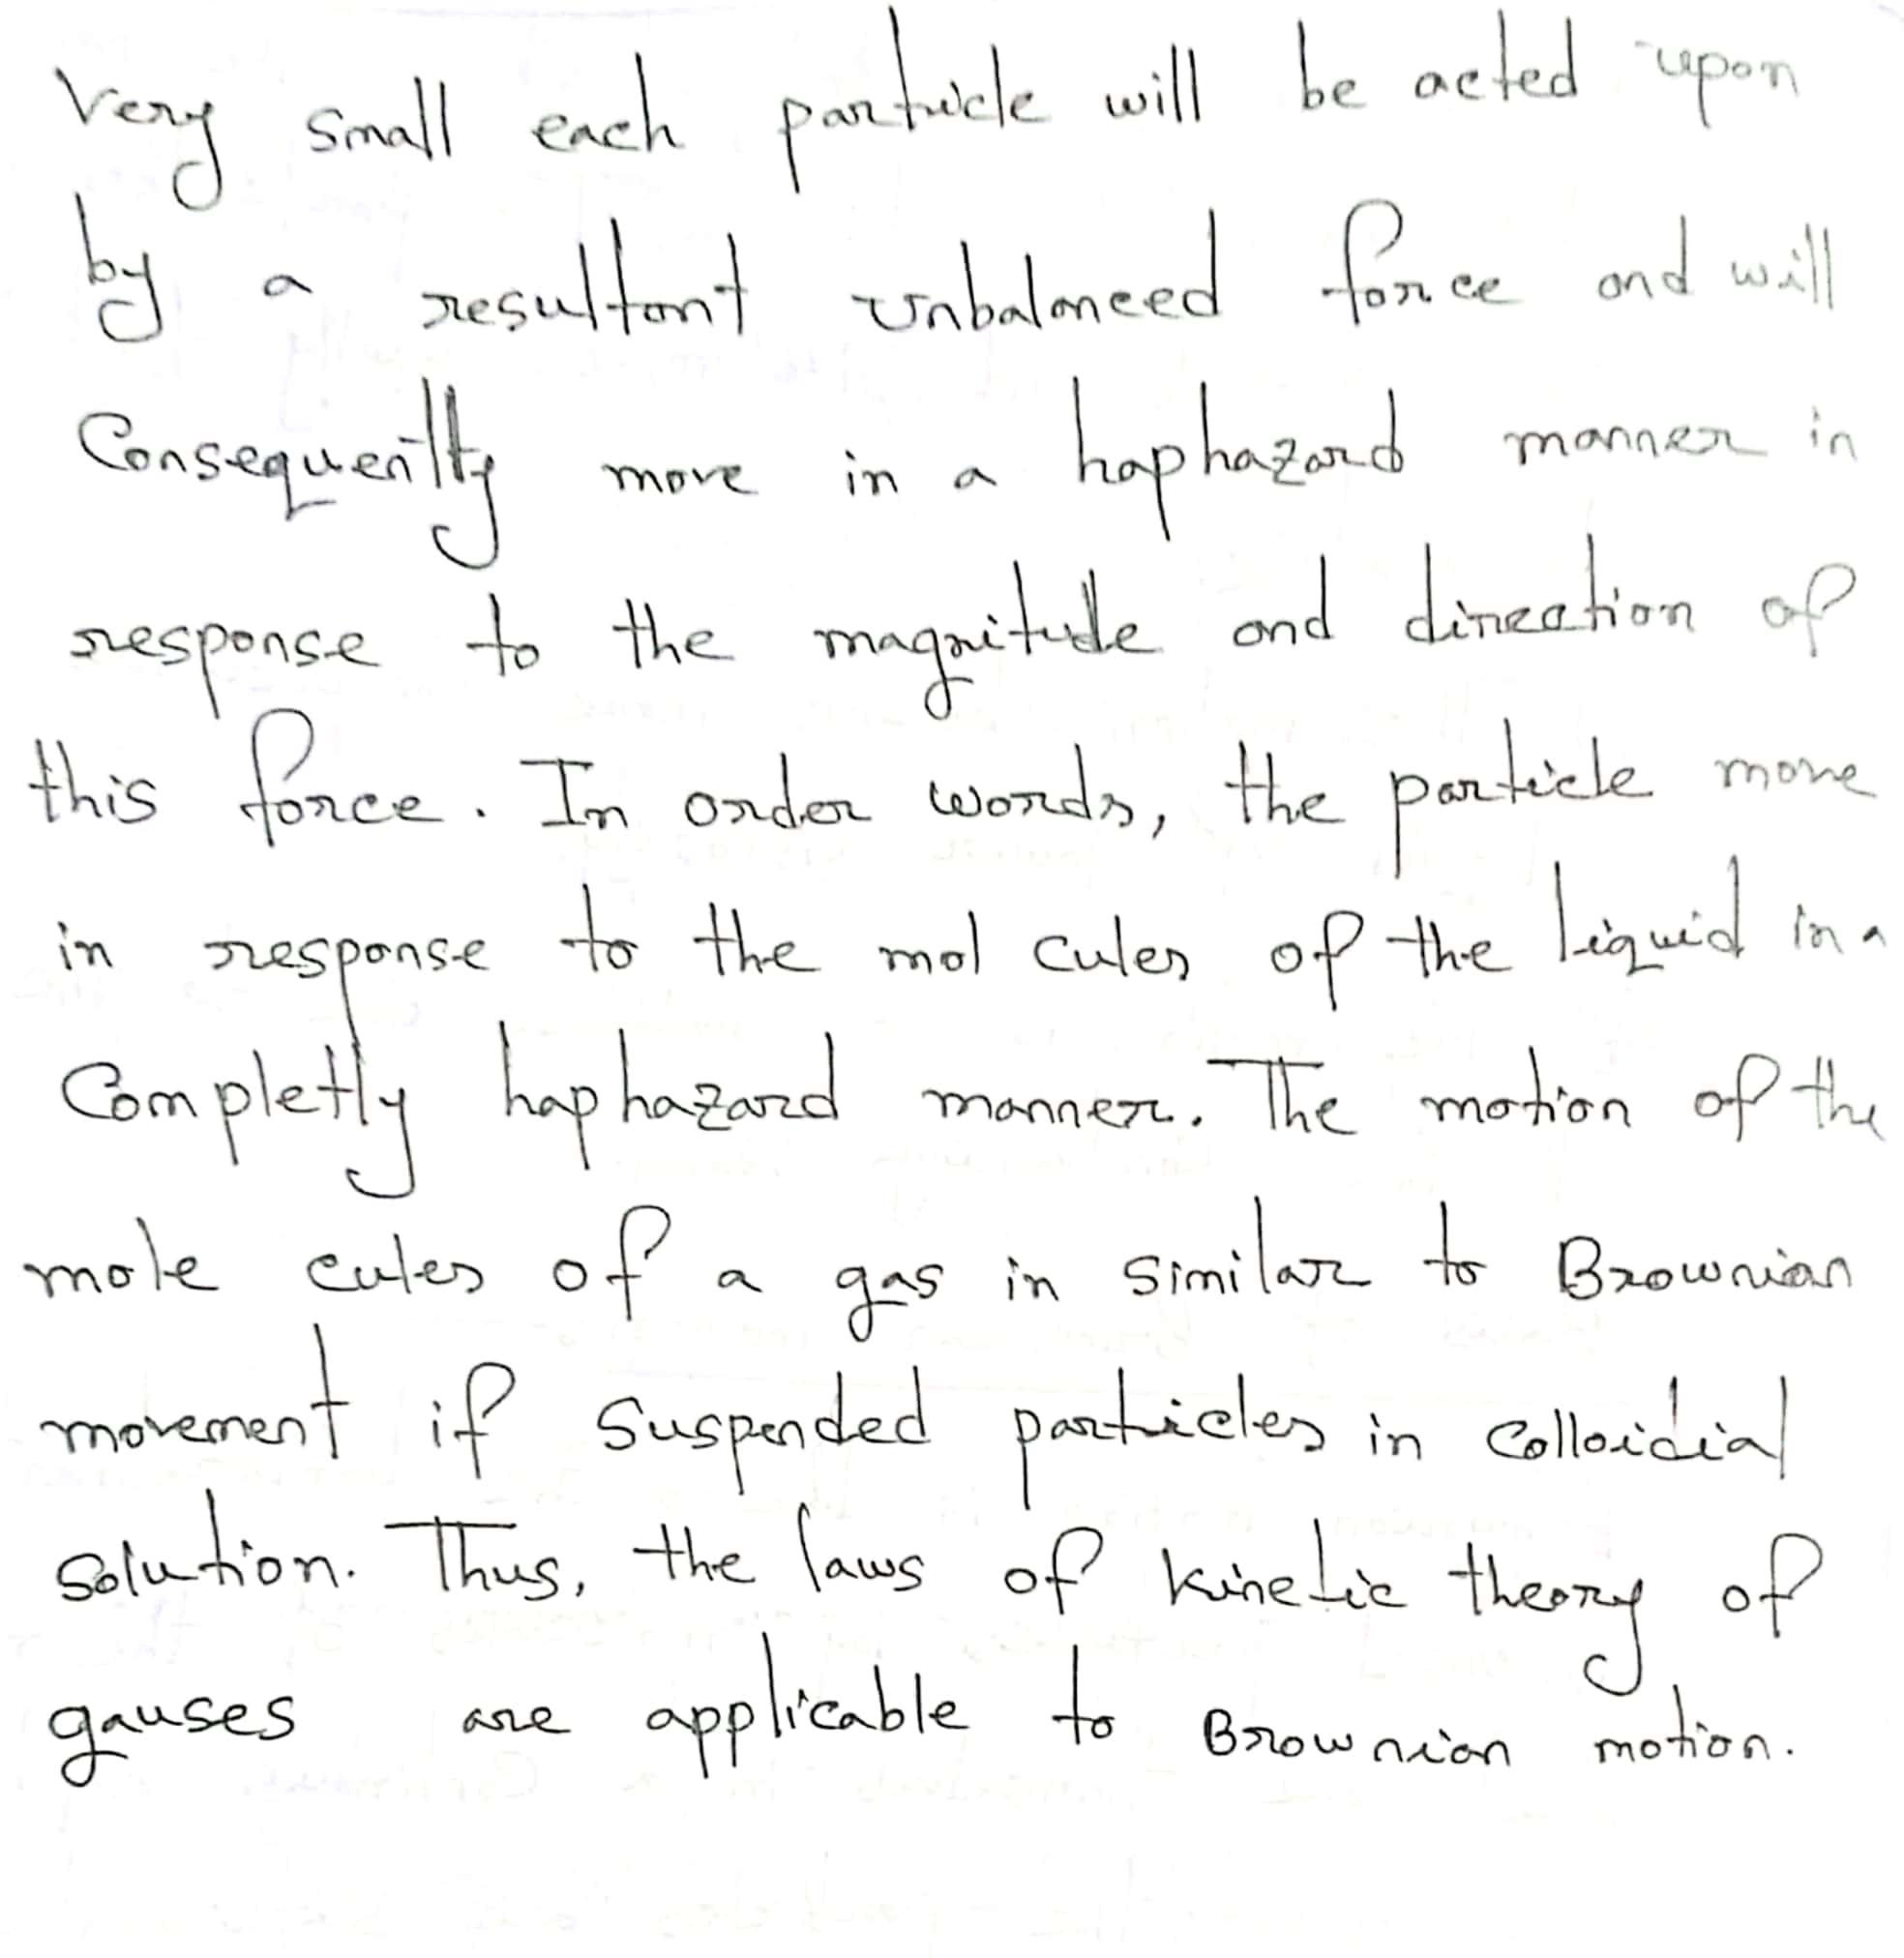 Very small each particle will be acted upon
by a resultant unbalanced force and will
Consequently move in a haphazard manner in
response to the magnitude and direction of
this force. In order words, the particle move
in response to the mol cules of the liquid in a
Completly haphazard manner. The motion of the
mole cules of a gas in similar to Brownian
movement if suspended particles in colloidial
solution. Thus, the laws of kinetic theory of
gauses are applicable to Brownian motion.